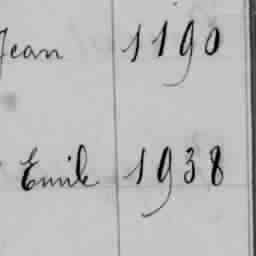 Jean 1190
Emile 1938